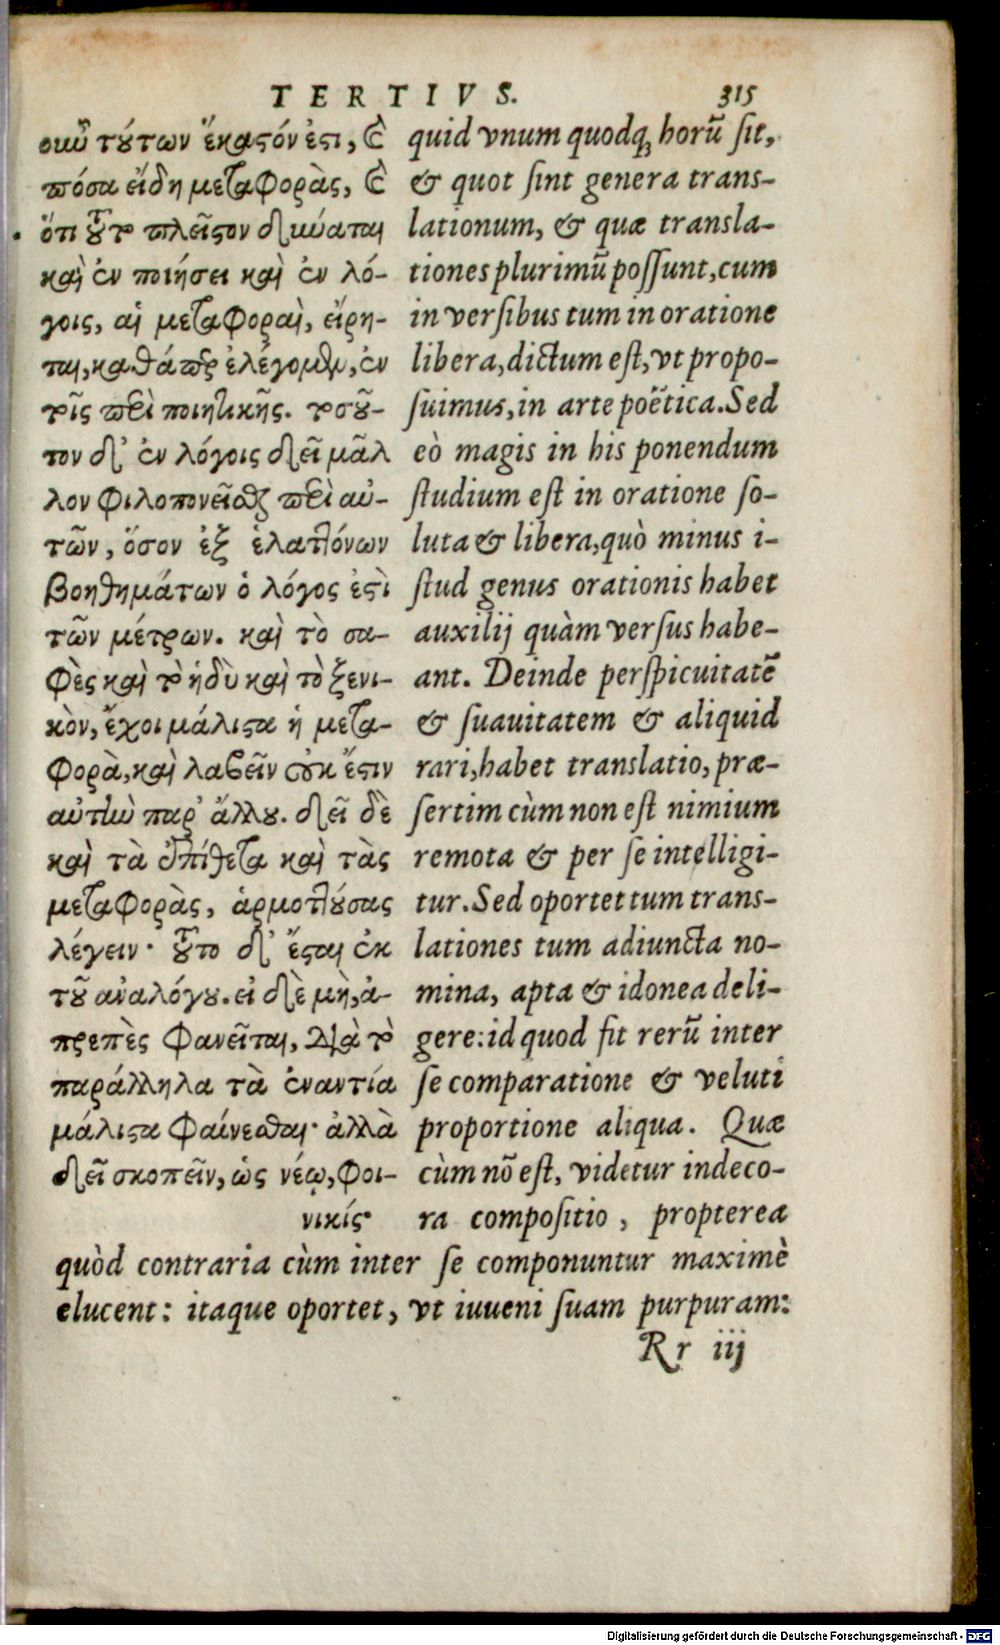 TERTIVS. 315
οιιῦ τούτων ἕκαστόν ἐστι, καὶ
πόσα εἴδη μεταφορᾶς, καὶ
ὅτι τοῦτο πλεῖστον δύναται
καὶ ἐν ποιήσει καὶ ἐν λό-
γοις, αἱ μεταφοραὶ, εἴρη-
ται, καθάπερ ἐλέγομεν, ἐν
τοῖς περὶ ποιητικῆς. τοσοῦ-
τον δ' ἐν λόγοις δεῖ μᾶλ
λον φιλοπονεῖσθαι περὶ αὐ-
τῶν, ὅσον ἐξ ἐλαττόνων
βοηθημάτων ὁ λόγος ἐστὶ
τῶν μέτρων. καὶ τὸ σα-
φὲς καὶ τὸ ἡδὺ καὶ τὸ ξενι-
κὸν, ἔχει μάλιστα ἡ μετα-
φορὰ, καὶ λαβεῖν οὐκ ἔστιν
αὐτὴν παρ' ἄλλου. δεῖ δὲ
καὶ τὰ ἐπίθετα καὶ τὰς
μεταφορὰς, ἁρμοττούσας
λέγειν· τοῦτο δ' ἔσται ἐκ
τοῦ ἀναλόγου. εἰ δὲ μὴ, ἀ-
πρεπὲς φανεῖται, διὰ τὸ
παράλληλα τὰ ἐναντία
μάλιστα φαίνεσθαι· ἀλλὰ
δεῖ σκοπεῖν, ὡς νέῳ, φοι-
νικίς·
quid vnum quodq; horū sit,
& quot sint genera trans-
lationum, & quæ transla-
tiones plurimū possunt, cum
in versibus tum in oratione
libera, dictum est, vt propo-
suimus, in arte poëtica. Sed
eò magis in his ponendum
studium est in oratione so-
luta & libera, quò minus i-
stud genus orationis habet
auxilij quàm versus habe-
ant. Deinde perspicuitatē
& suauitatem & aliquid
rari, habet translatio, præ-
sertim cùm non est nimium
remota & per se intelligi-
tur. Sed oportet tum trans-
lationes tum adiuncta no-
mina, apta & idonea deli-
gere: id quod fit rerū inter
se comparatione & veluti
proportione aliqua. Quæ
cùm nō est, videtur indeco-
ra compositio, propterea
quòd contraria cùm inter se componuntur maximè
elucent: itaque oportet, vt iuueni suam purpuram:
Rr iij
Digitalisierung gefördert durch die Deutsche Forschungsgemeinschaft - DFG